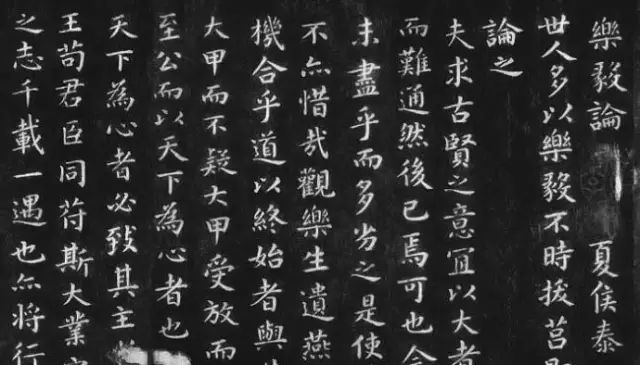 樂毅論 夏侯泰
世人多以樂毅不時拔莒
論之
夫求古賢之意宜以大者
而難通然後已焉可也今
未盡乎而多劣之是使
不亦惜哉觀樂生遺燕
機合乎道以終始者與
大甲而不疑大甲受放而
至公而以天下為心者也
天下為心者必致其主
王苟君臣同符斯大業
之志千載一遇也亦将行